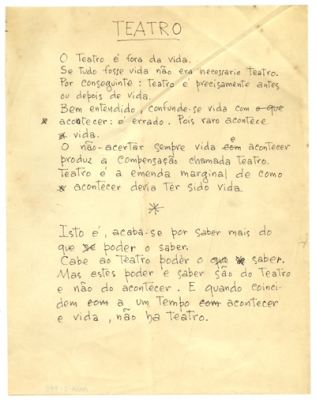 TEATRO
O Teatro é fora da vida.
Se tudo fosse vida não era necessario Teatro.
Por conseguinte: Teatro é precisamente antes
ou depois de vida.
Bem entendido, confunde-se vida com o que
acontecer: é errado. Pois raro acontece
vida.
O não-acertar sempre vida com e acontecer
produz a compensação chamada Teatro.
Teatro é a emenda marginal de como
acontecer devia ter sido vida.
*
Isto é, acaba-se por saber mais do
que poder o saber.
Cabe ao Teatro poder o que saber.
Mas estes poder e saber são do Teatro
e não do acontecer. E quando coinci-
dem com a um Tempo com acontecer
e vida, não ha Teatro.